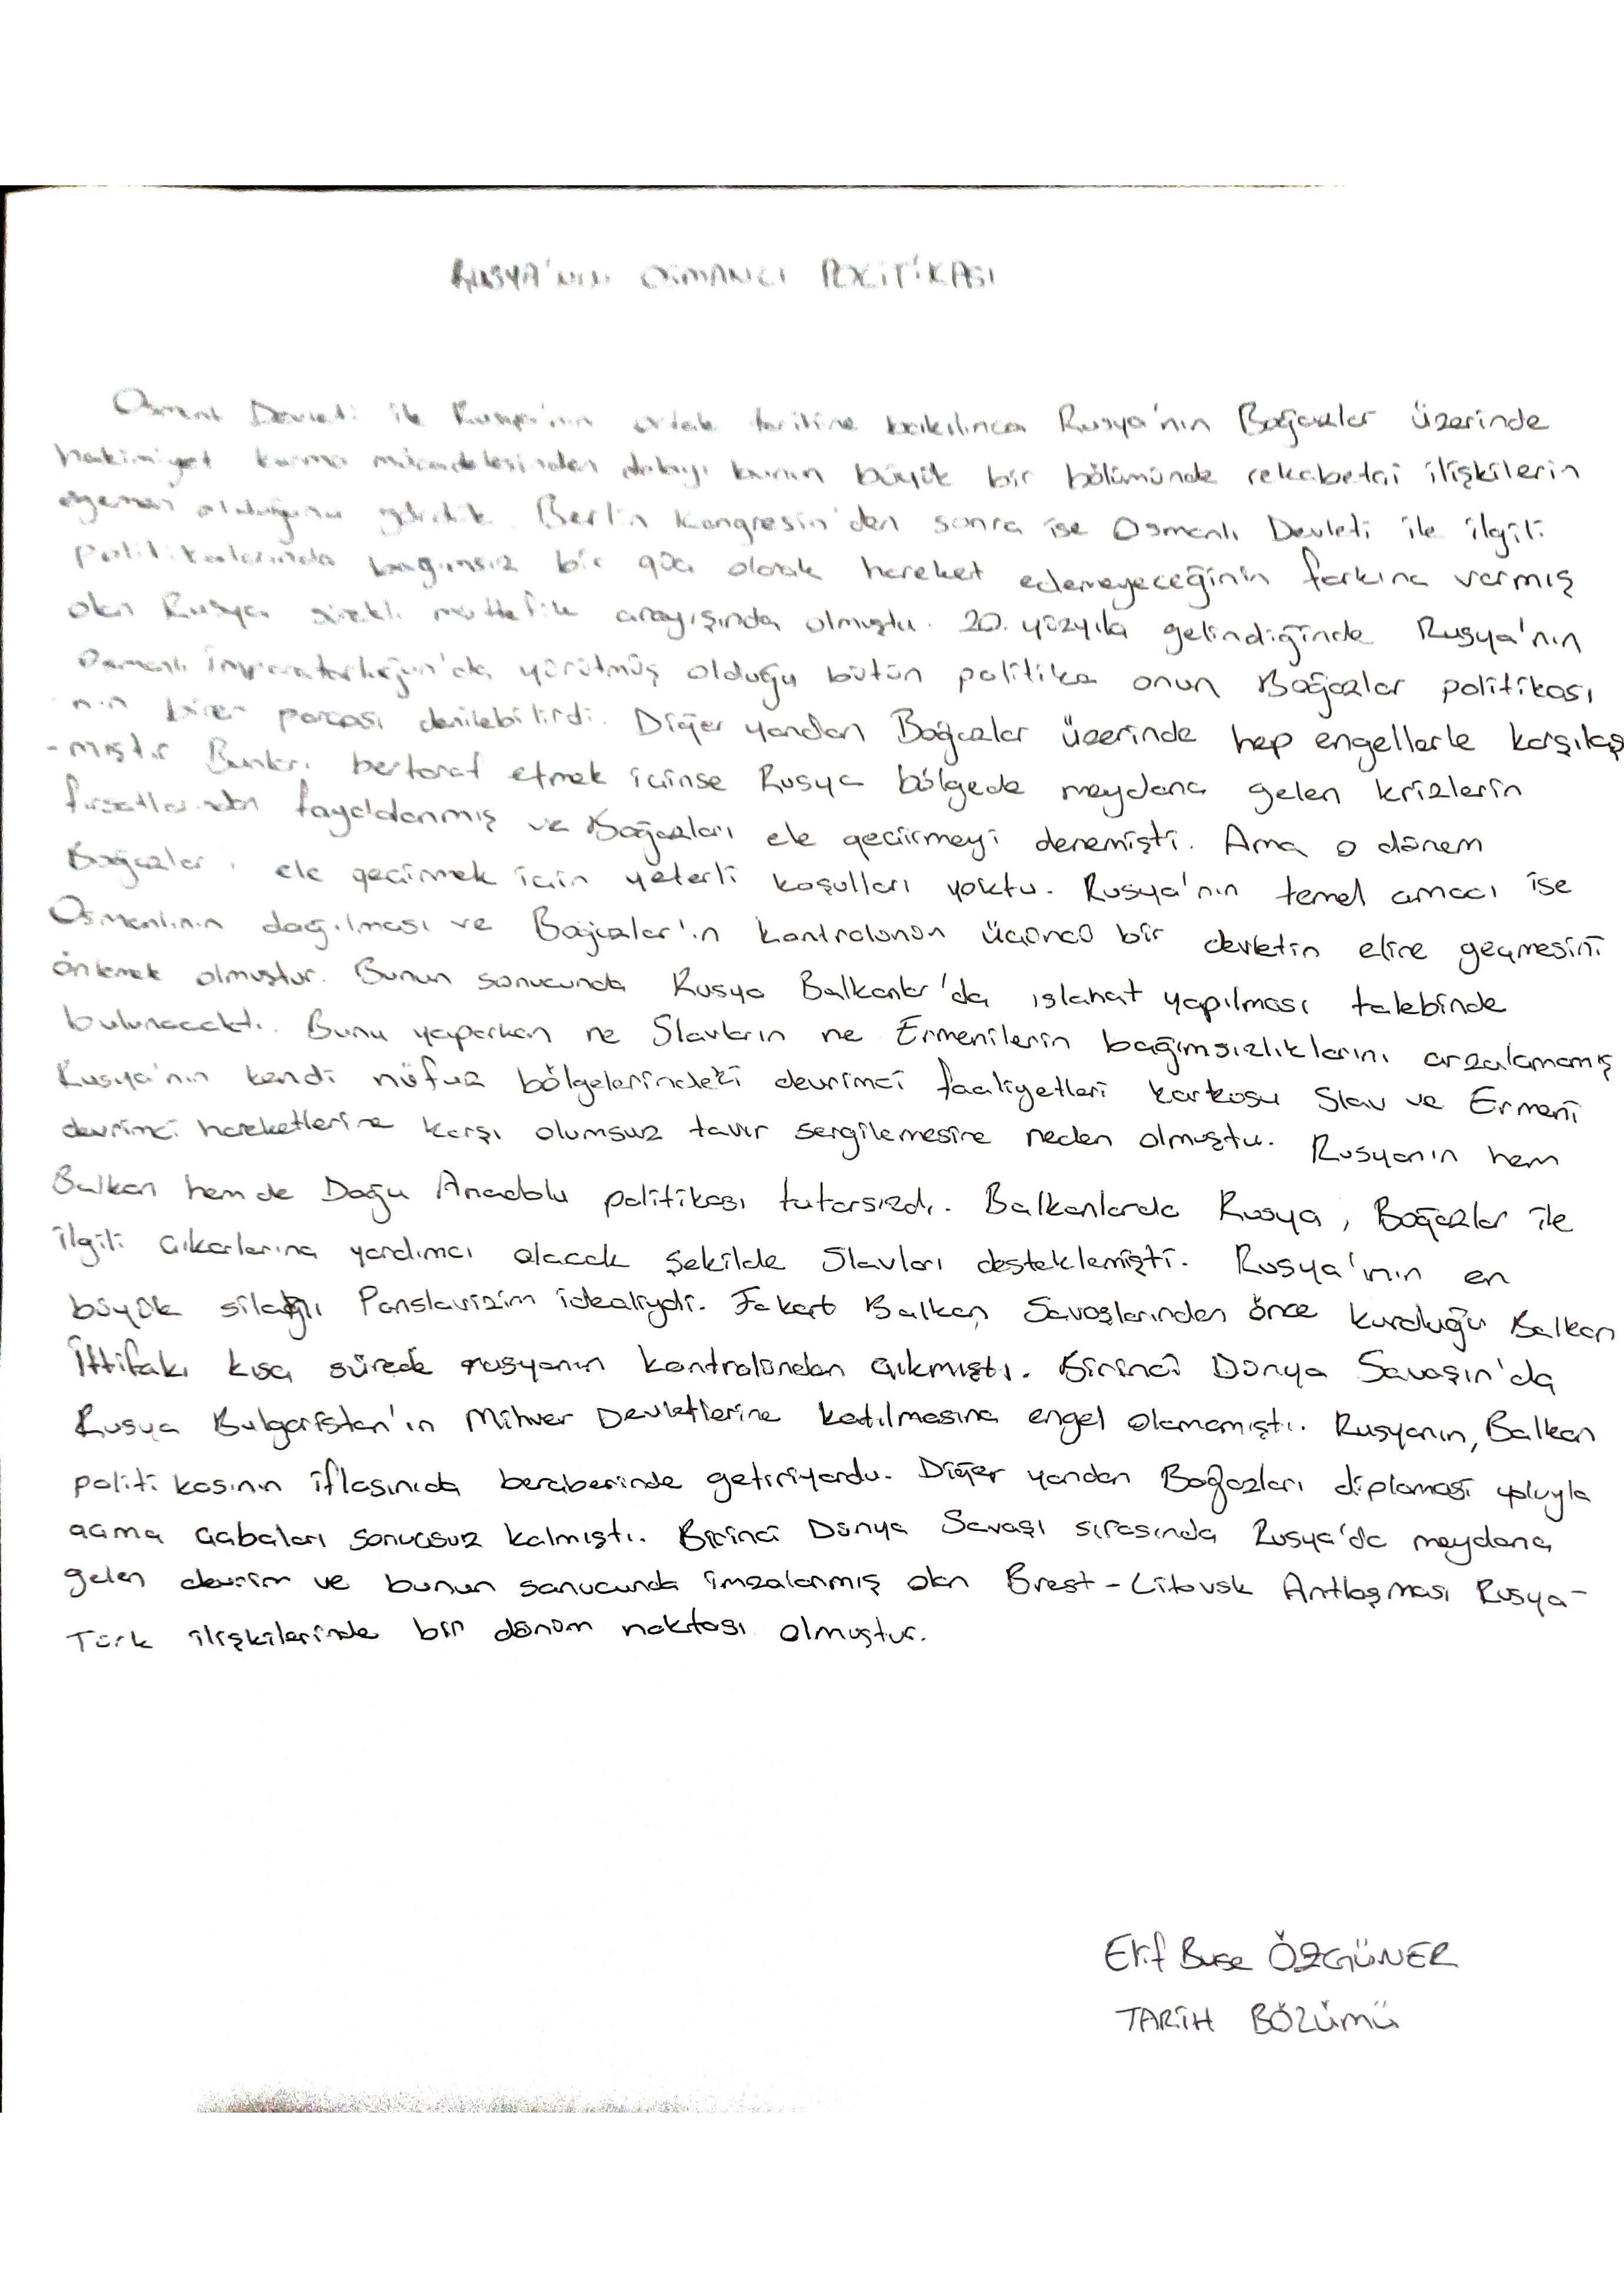 RUSYA'NIN OSMANLI POLİTİKASI
Osmanlı Devleti ile Rusya'nın ortak tarihine bakılınca Rusya'nın Boğazlar üzerinde
hakimiyet kurma mücadelesinden dolayı bunun büyük bir bölümünde rekabetçi ilişkilerin
egemen olduğunu gördük. Berlin Kongresin'den sonra ise Osmanlı Devleti ile ilgili
politikalarında bağımsız bir güç olarak hareket edemeyeceğinin farkına varmış
olan Rusya sürekli müttefik arayışında olmuştu. 20. yüzyıla gelindiğinde Rusya'nın
Osmanlı İmparatorluğun'da yürütmüş olduğu bütün politika onun Boğazlar politikası
nın birer parçası denilebilirdi. Diğer yandan Boğazlar üzerinde hep engellerle karşılaş
-mıştır Bunları bertaraf etmek içinse Rusya bölgede meydana gelen krizlerin
fırsatlarından faydalanmış ve Boğazları ele geçirmeyi denemişti. Ama o dönem
Boğazları ele geçirmek için yeterli koşulları yoktu. Rusya'nın temel amacı ise
Osmanlının dağılması ve Boğazlar'ın kontrolünün üçüncü bir devletin eline geçmesini
önlemek olmuştur. Bunun sonucunda Rusya Balkanlar'da ıslahat yapılması talebinde
bulunacaktı. Bunu yaparken ne Slavların ne Ermenilerin bağımsızlıklarını arzalamamış
Rusya'nın kendi nüfuz bölgelerindeki devrimci faaliyetleri korkusu Slav ve Ermeni
devrimci hareketlerine karşı olumsuz tavır sergilemesine neden olmuştu. Rusyanın hem
Balkan hem de Doğu Anadolu politikası tutarsızdı. Balkanlarda Rusya, Boğazlar ile
ilgili çıkarlarına yardımcı olacak şekilde Slavları desteklemişti. Rusya'nın en
büyük silahı Panslavizim idealiydi. Fakat Balkan Savaşlarından önce kurduğu Balkan
İttifakı kısa sürede rusyanın kontrolünden çıkmıştı. Birinci Dünya Savaşın'da
Rusya Bulgaristan'ın Mihver Devletlerine katılmasına engel olamamıştı. Rusyanın, Balkan
politikasının iflasınıda beraberinde getiriyordu. Diğer yandan Boğazları diplomasi yoluyla
açma çabaları sonuçsuz kalmıştı. Birinci Dünya Savaşı sırasında Rusya'da meydana
gelen devrim ve bunun sonucunda imzalanmış olan Brest-Litovsk Antlaşması Rusya-
Türk ilişkilerinde bir dönüm noktası olmuştur.
Elif Buse ÖZGÜNER
TARİH BÖLÜMÜ